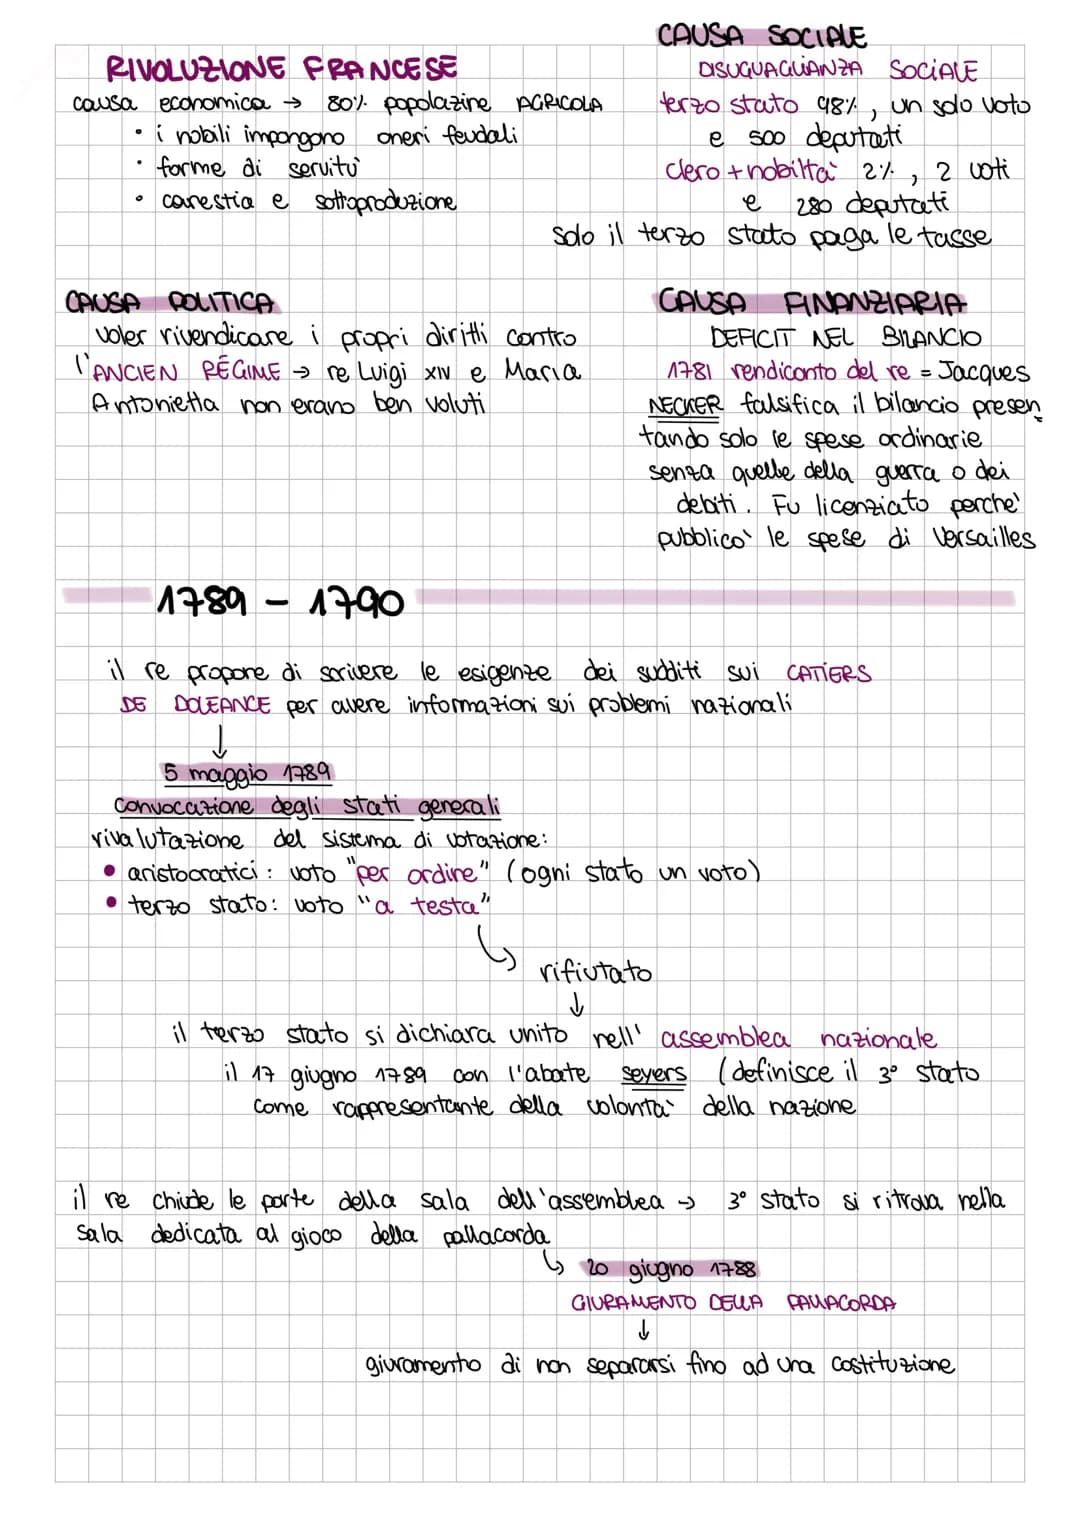 RIVOLUZIONE FRANCESE
causa economica → 80% popolazine AGRICOLA
• i nobili impongono oneri feudali
• forme di servitù
• carestia e sottoproduzione
CAUSA SOCIALE
DISUGUAGLIANZA SOCIALE
terzo stato 98%, un solo voto
e 500 deputati
clero + nobiltà 2%, 2 voti
e 280 deputati
solo il terzo stato paga le tasse
CAUSA POLITICA
voler rivendicare i propri diritti contro
l'ANCIEN RÉGIME → re Luigi XIV e Maria
Antonietta non erano ben voluti
CAUSA FINANZIARIA
DEFICIT NEL BILANCIO
1781 rendiconto del re = Jacques
NECKER falsifica il bilancio presen
tando solo le spese ordinarie
senza quelle della guerra o dei
debiti. Fu licenziato perche'
pubblicò le spese di Versailles
1789 - 1790
il re propone di scrivere le esigenze dei sudditi sui CATIERS
DE DOLEANCE per avere informazioni sui problemi nazionali
↓
5 maggio 1789
convocazione degli stati generali
rivalutazione del sistema di votazione:
• aristocratici: voto "per ordine" (ogni stato un voto)
• terzo stato: voto "a testa"
↳ rifiutato
↓
il terzo stato si dichiara unito nell' assemblea nazionale
il 17 giugno 1789 con l'abate seyers (definisce il 3° stato
come rappresentante della volontà della nazione
il re chiude le porte della sala dell'assemblea → 3° stato si ritrova nella
sala dedicata al gioco della pallacorda
↳ 20 giugno 1788
GIURAMENTO DELLA PALLACORDA
↓
giuramento di non separarsi fino ad una costituzione